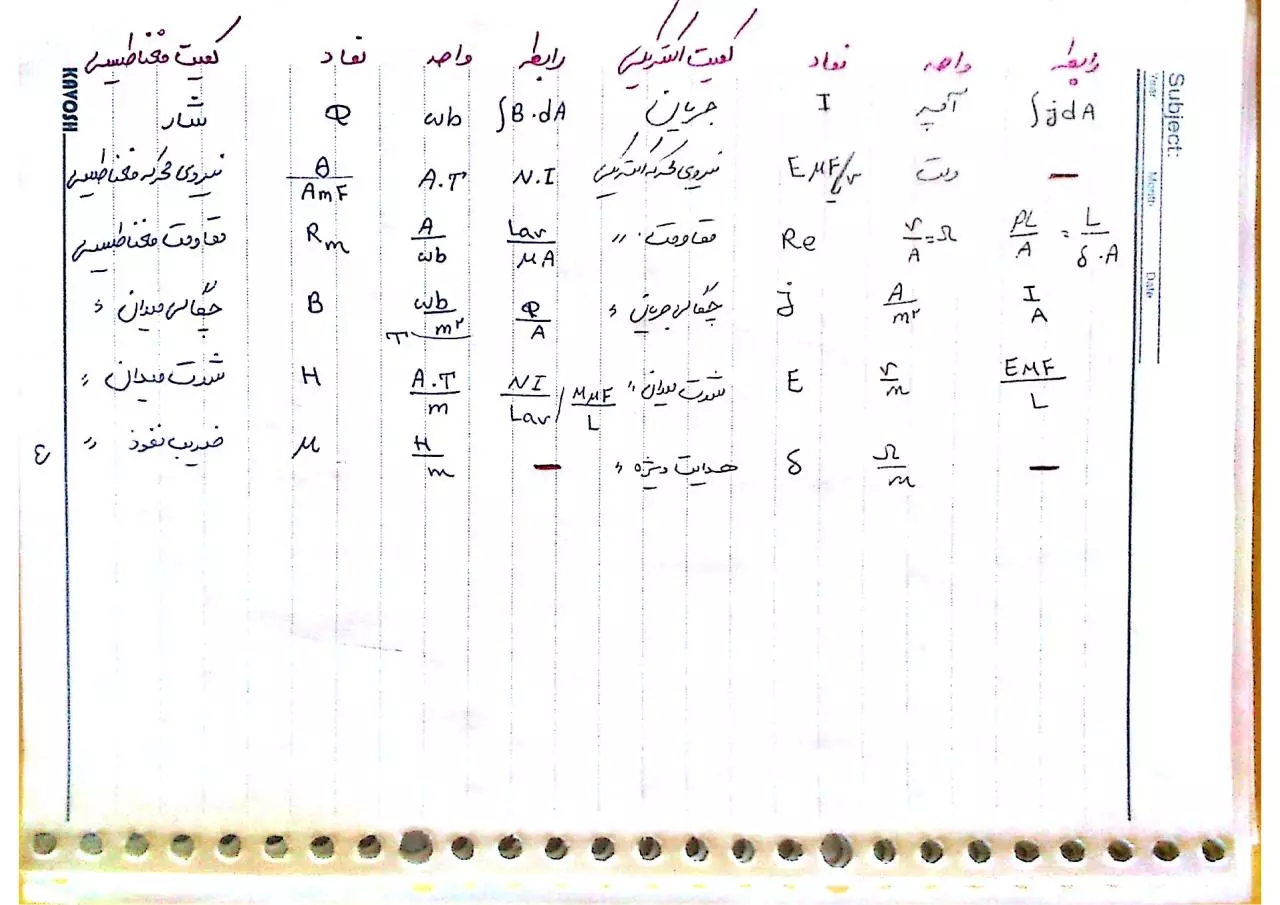 کمیت مغناطیسی نماد واحد رابطه کمیت الکتریکی نماد واحد رابطه
شار Φ wb ∫B·dA جریان I آمپر ∫jdA
نیروی محرکه مغناطیسی θ/AmF A.T N.I نیروی محرکه الکتریکی EMF/v یا ولت —
مقاومت مغناطیسی Rm A/wb Lav/μA مقاومت " Re v/A=Ω ρL/A = L/δ·A
چگالی میدان " B wb/m² T Φ/A چگالی جریان " j A/m² I/A
شدت میدان " H A.T/m NI/Lav / MMF/L شدت میدان " E v/m EMF/L
ضریب نفوذ " μ H/m — هدایت ویژه " δ Ω/m —
Subject:
Year Month Date
KAVOSH
٤